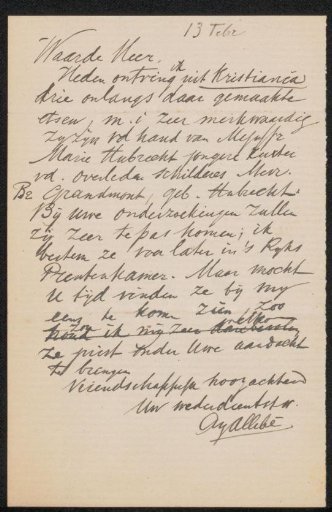 13 Febr
Waarde Heer.
Heden ontving ik uit Kristiania
drie onlangs daar gemaakte
etsen, m.i. zeer merkwaardig
zij zijn v.d. hand van Mejuffr
Marie Hubrecht jongere zuster
vd. overleden schilderes Mevr.
Be Grandmont, geb. Hubrecht.
Bij Uwe onderzoekingen zullen
zij zeer te pas komen; ik
bestem ze voor later in 's Ryks
Prentenkamer. Maar mocht
U tijd vinden ze bij my
eens te komen zien, zoo
zou ik mij zeer
ze juist onder Uwe aandacht
te brengen
Vriendschappelijk hoogachtend
Uw wederdienstw.
AugAllebé